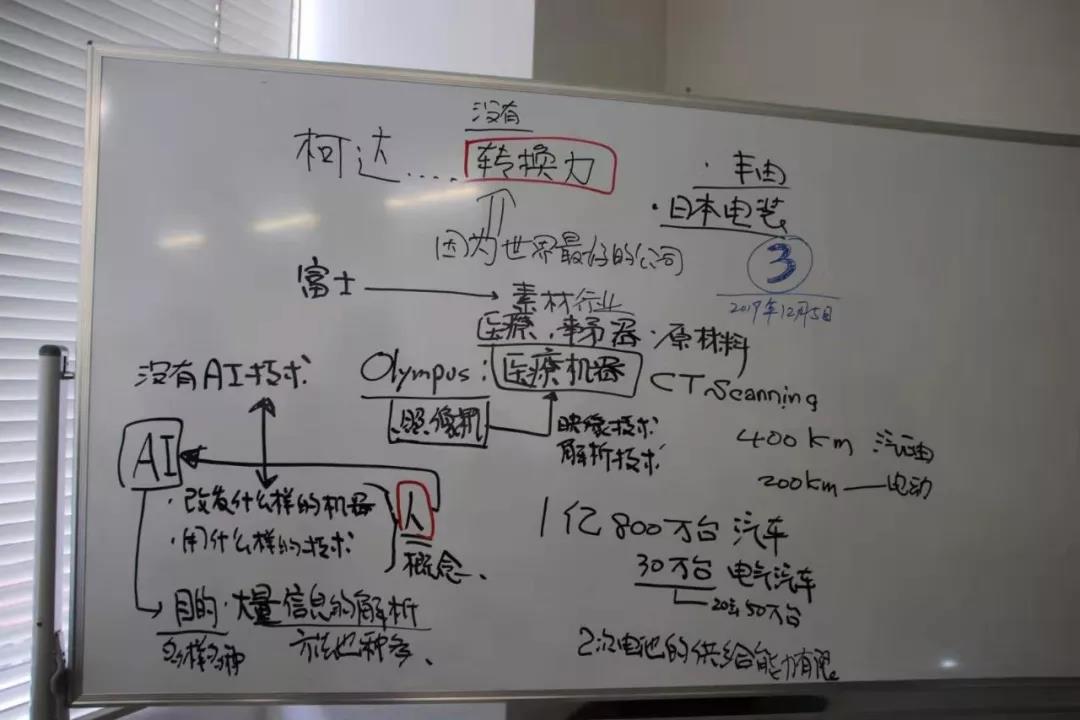 没有
柯达....转换力
·丰田
·日本电装
因为世界最好的公司
3
2019年12月5日
富士
素材行业
医療
·原材料
Olympus: 医療机器
CT Scanning
照像机
映像技术
解析技术
400km 汽油
200km——电动
没有AI技术
AI
·改发什么样的机器
·用什么样的技术
人
概念、
目的·大量信息的解析
多样多种
方法也种多、
1亿800万台 汽车
30万台 电气汽车
50万台
2次电池的供给能力有限。